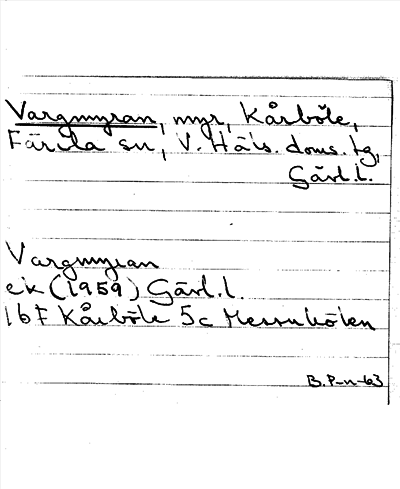 Vargmyran, myr, Kårböle,
Färila sn, V. Häls. doms. tg,
Gävl.l.
Vargmyran
ek (1959) Gävl.l.
16F Kårböle 5c Messukölen
B.P-n-63